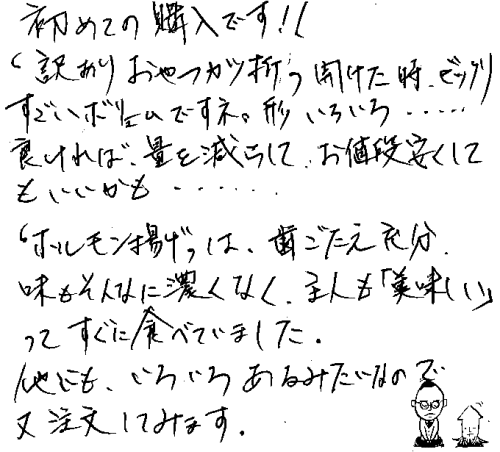 初めての購入です!!
“訳ありおやつカツ折”開けた時、ビックリ
すごいボリュムですネ。形いろいろ・・・・・
良ければ、量を減らして、お値段安くして
もいいかも・・・・・・・
“ホルモン揚げ”は、歯ごたえ充分、
味もそんなに濃くなく、主人も「美味しい」
ってすぐに食べていました。
他にも、いろいろあるみたいなので
又注文してみます。